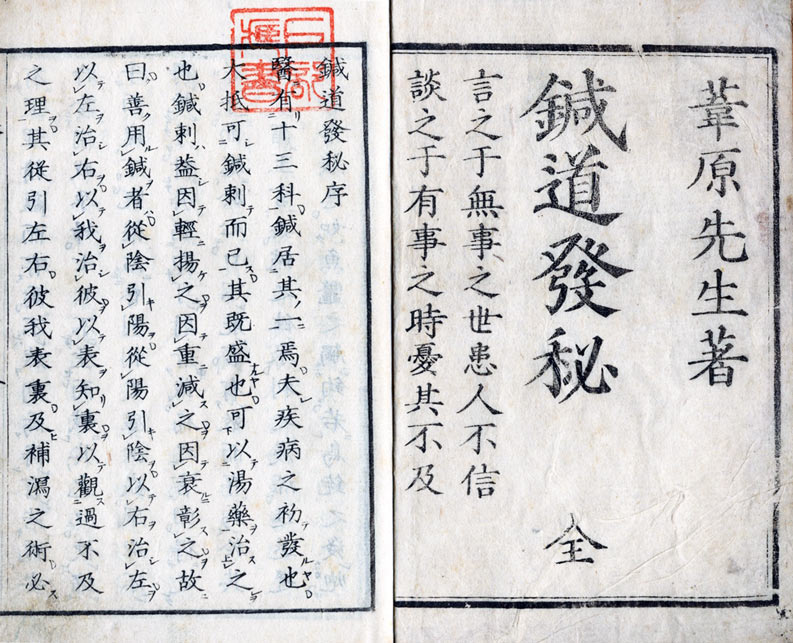 葦原先生著
鍼道發秘 全
言之于無事之世患人不信
談之于有事之時憂其不及
鍼道發秘序
醫有十三科鍼居其一焉夫疾病之初發也
大抵可鍼刺而已其既盛也可以湯藥治之
也鍼刺葢因輕揚之因重減之因衰彰之故
曰善用鍼者從陰引陽從陽引陰以右治左
以左治右以我治彼以表知裏以觀過不及
之理其從引左右彼我表裏及補瀉之術必